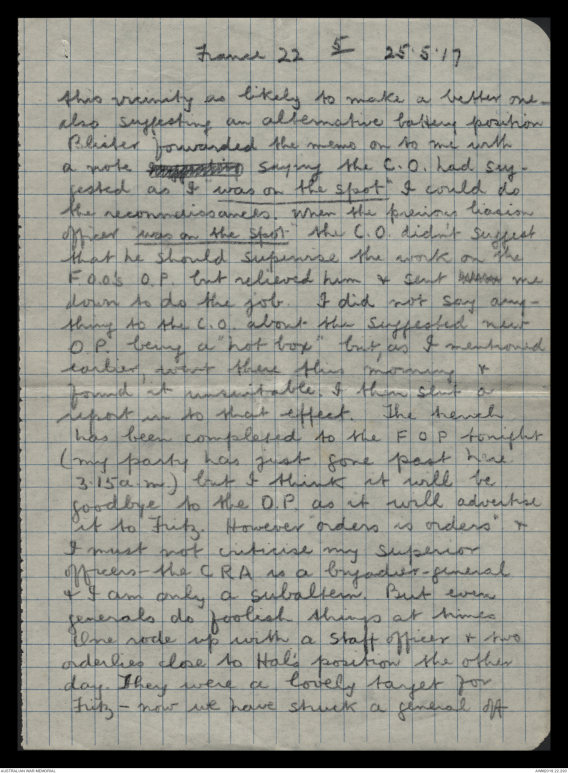 France 22 5 25.5.17
this vicinity as likely to make a better one -
also suggesting an alternative battery position
forwarded the memo on to me with
a note saying the C.O. had sug-
gested as I "was on the spot" I could do
the reconnaissances. When the previous liasion
officer "was on the spot" the C.O. didn't suggest
that he should supervise the work on the
F.O.O's O.P. but relieved him & sent me
down to do the job. I did not say any-
thing to the C.O. about the suggested new
O.P. being a "hot box" but, as I mentioned
earlier, went there this morning &
found it unsuitable. I then sent a
report in to that effect. The trench
has been completed to the F O P tonight
(my party has just gone past here
3.15 a.m) but I think it will be
goodbye to the O.P. as it will advertise
it to Fritz. However "orders is orders" &
I must not criticise my superior
officers - the C R A is a brigadier-general
& I am only a subaltern. But even
generals do foolish things at times
One rode up with a staff officer & two
orderlies close to Hal's position the other
day. They were a lovely target for
Fritz - now we have struck a general off
AUSTRALIAN WAR MEMORIAL